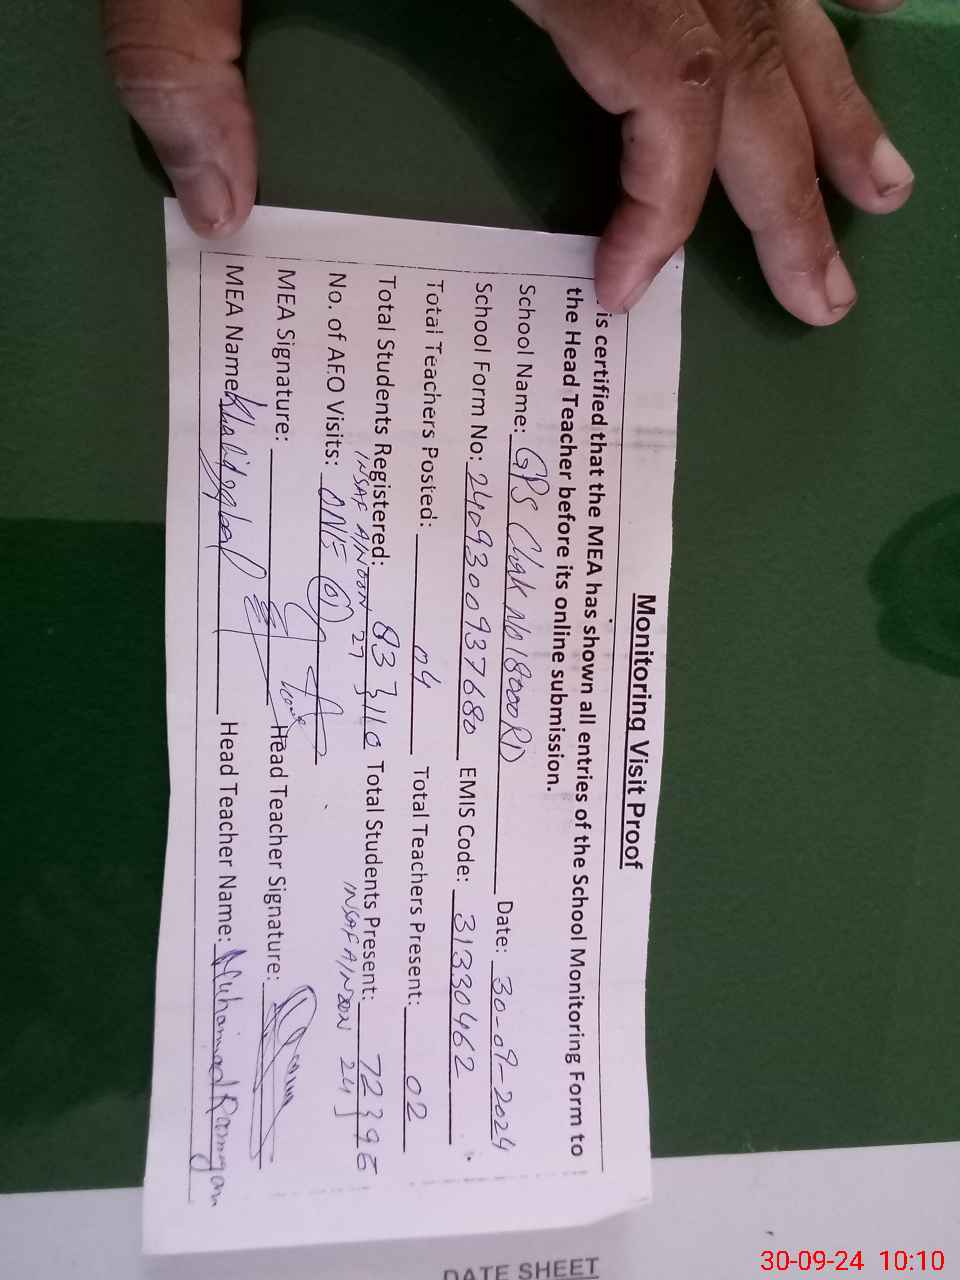 Monitoring Visit Proof
is certified that the MEA has shown all entries of the School Monitoring Form to
the Head Teacher before its online submission.
School Name: GPS Chak No 18000 RD Date: 30-09-2024
School Form No: 2409300937680 EMIS Code: 31330462
Total Teachers Posted: 04 Total Teachers Present: 02
Total Students Registered: 83 } 110 Total Students Present: 72 } 96
INSAF AFNOON 27 INSAF AFNOON 24
No. of AEO Visits: ONE (01)
MEA Signature: Head Teacher Signature:
MEA Name: Khalid Iqbal Head Teacher Name: Muhammad Ramzan
DATE SHEET
30-09-24 10:10